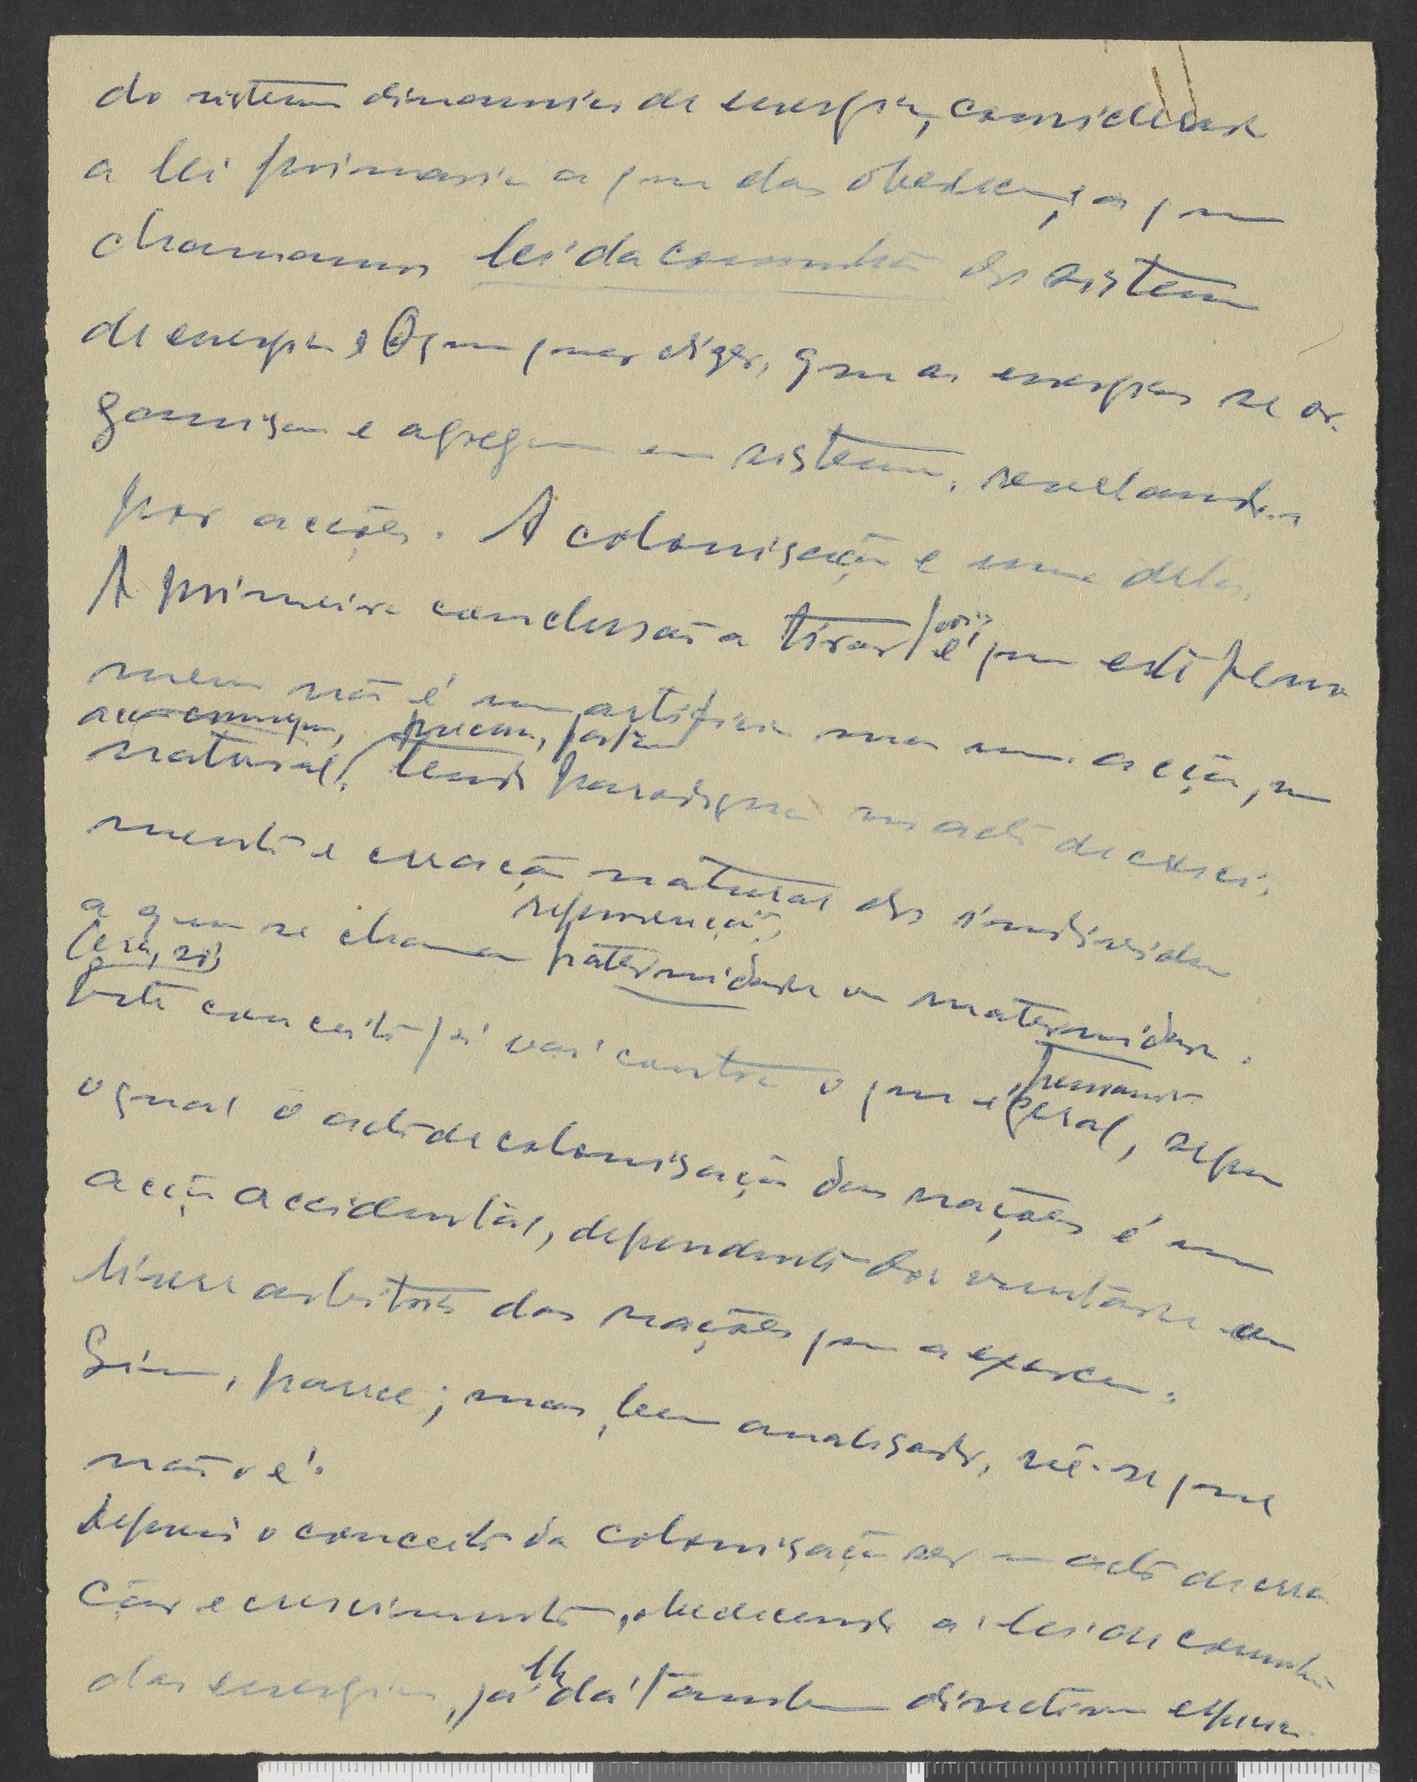 do sistema dinamico de energia, considerar
a lei primaria a que elas obedecem, a que
chamamos lei da comunhão do sistema
de energia. O que quer dizer, que as energias se or-
ganisam e agregam em sistema, revelando-se
por acções. A colonisação é uma delas.
A primeira conclusão a tirar, pois, é que este feno
meno não é um artificio mas uma acção, um
natural, tendo paradigma no acto de cresci-
mento e creação natural dos individuos
a que se chama paternidade ou maternidade.
reprodução,
Este conceito já vai contra o que é geral, segun
pensamento
o qual o acto de colonisação das nações é uma
acção accidental, dependente da vontade ou
livre arbitrio das nações que a exercem.
Sim, parece; mas, bem analisado, vê-se que
não o é.
Depois o conceito da colonisação ser um acto de crea
ção e crescimento, obedecendo á lei de comunhão
das energias, já lhe dá tambem directivas